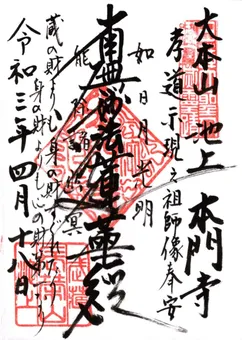 大本山池上 本門寺
孝道示現之祖師像奉安
如日月光明
南無妙法蓮華経
能除諸幽冥
蔵の財よりも身の財すぐれたり
身の財よりも心の財第一なり
令和三年四月十八日